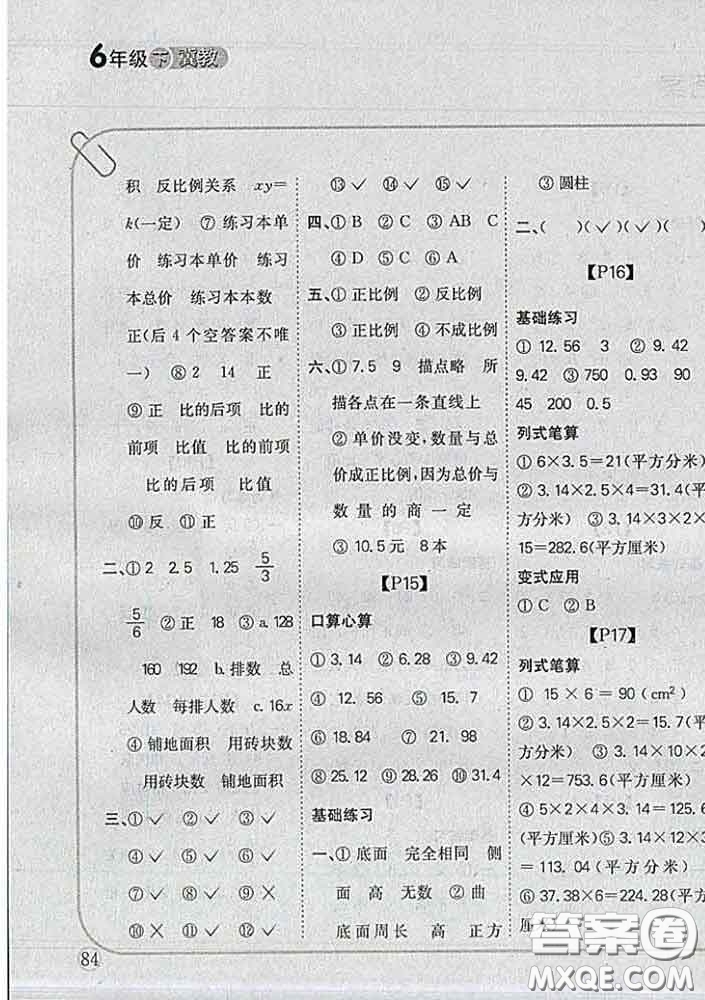 6年级 下 冀教
积 反比例关系 xy=
k(一定) ⑦ 练习本单
价 练习本单价 练习
本总价 练习本本数
正(后 4 个空答案不唯
一) ⑧ 2 14 正
⑨ 正 比的后项 比的
前项 比值 比的前项
比的后项 比值
⑩ 反 ⑪ 正
二、① 2 2.5 1.25 5/3
5/6 ② 正 18 ③ a. 128
160 192 b. 排数 总
人数 每排人数 c. 16x
④ 铺地面积 用砖块数
用砖块数 铺地面积
三、① ✓ ② ✓ ③ ✓
④ ✓ ⑤ ✓ ⑥ ✓
⑦ ✓ ⑧ ✓ ⑨ ×
⑩ × ⑪ ✓ ⑫ ✓
⑬ ✓ ⑭ ✓ ⑮ ✓
四、① B ② C ③ AB C
④ D ⑤ C ⑥ A
五、① 正比例 ② 反比例
③ 正比例 ④ 不成比例
六、① 7.5 9 描点略 所
描各点在一条直线上
② 单价没变,数量与总
价成正比例,因为总价与
数量的商一定
③ 10.5 元 8 本
【P15】
口算心算
① 3.14 ② 6.28 ③ 9.42
④ 12.56 ⑤ 15.7
⑥ 18.84 ⑦ 21.98
⑧ 25.12 ⑨ 28.26 ⑩ 31.4
基础练习
一、① 底面 完全相同 侧
面 高 无数 ② 曲
底面周长 高 正方
③ 圆柱
二、( )(✓)(✓)(
【P16】
基础练习
① 12.56 3 ② 9.42
9.42 ③ 750 0.93 90
45 200 0.5
列式笔算
① 6×3.5=21(平方分米)
② 3.14×2.5×4=31.4(平
方分米) ③ 3.14×3×2×
15=282.6(平方厘米)
变式应用
① C ② B
【P17】
列式笔算
① 15×6=90(cm²)
② 3.14×2.5×2=15.7(平
方分米) ③ 3.14×10×2
×12=753.6(平方厘米)
④ 5×2×4×3.14=125.6
(平方厘米) ⑤ 3.14×12×3
=113.04(平方厘米)
⑥ 37.38×6=224.28(平方
厘米)
84
答案圈
MXQE.COM